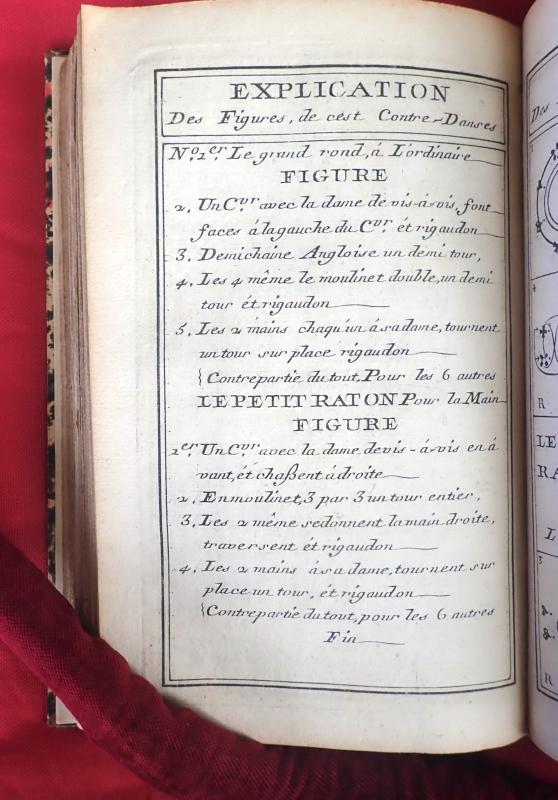 EXPLICATION
Des Figures, de cest Contre-Danses
No. 1er. Le grand rond, á L'ordinaire
FIGURE
2. Un Cvr. avec la dame de vis-á-vis, font
faces á la gauche du Cvr. ét rigaudon
3. Demi chaine Angloise un demi tour,
4. Les 4 même le moulinet double, un demi
tour ét rigaudon
5. Les 2 mains chaqu'un á sa dame, tournent
un tour sur place rigaudon
{Contrepartie du tout, Pour les 6 autres
LE PETIT RATON Pour la Main
FIGURE
1er. Un Cvr. avec la dame de vis-á-vis en á
vant, ét chaßent á droite
2. En moulinet, 3 par 3 un tour entier,
3. Les 2 même se donnent la main droite,
traversent ét rigaudon
4. Les 2 mains á sa dame, tournent sur
place un tour, ét rigaudon
{Contrepartie du tout, pour les 6 autres
Fin
Des
R
LE
RA
L
3
&.
&.
R